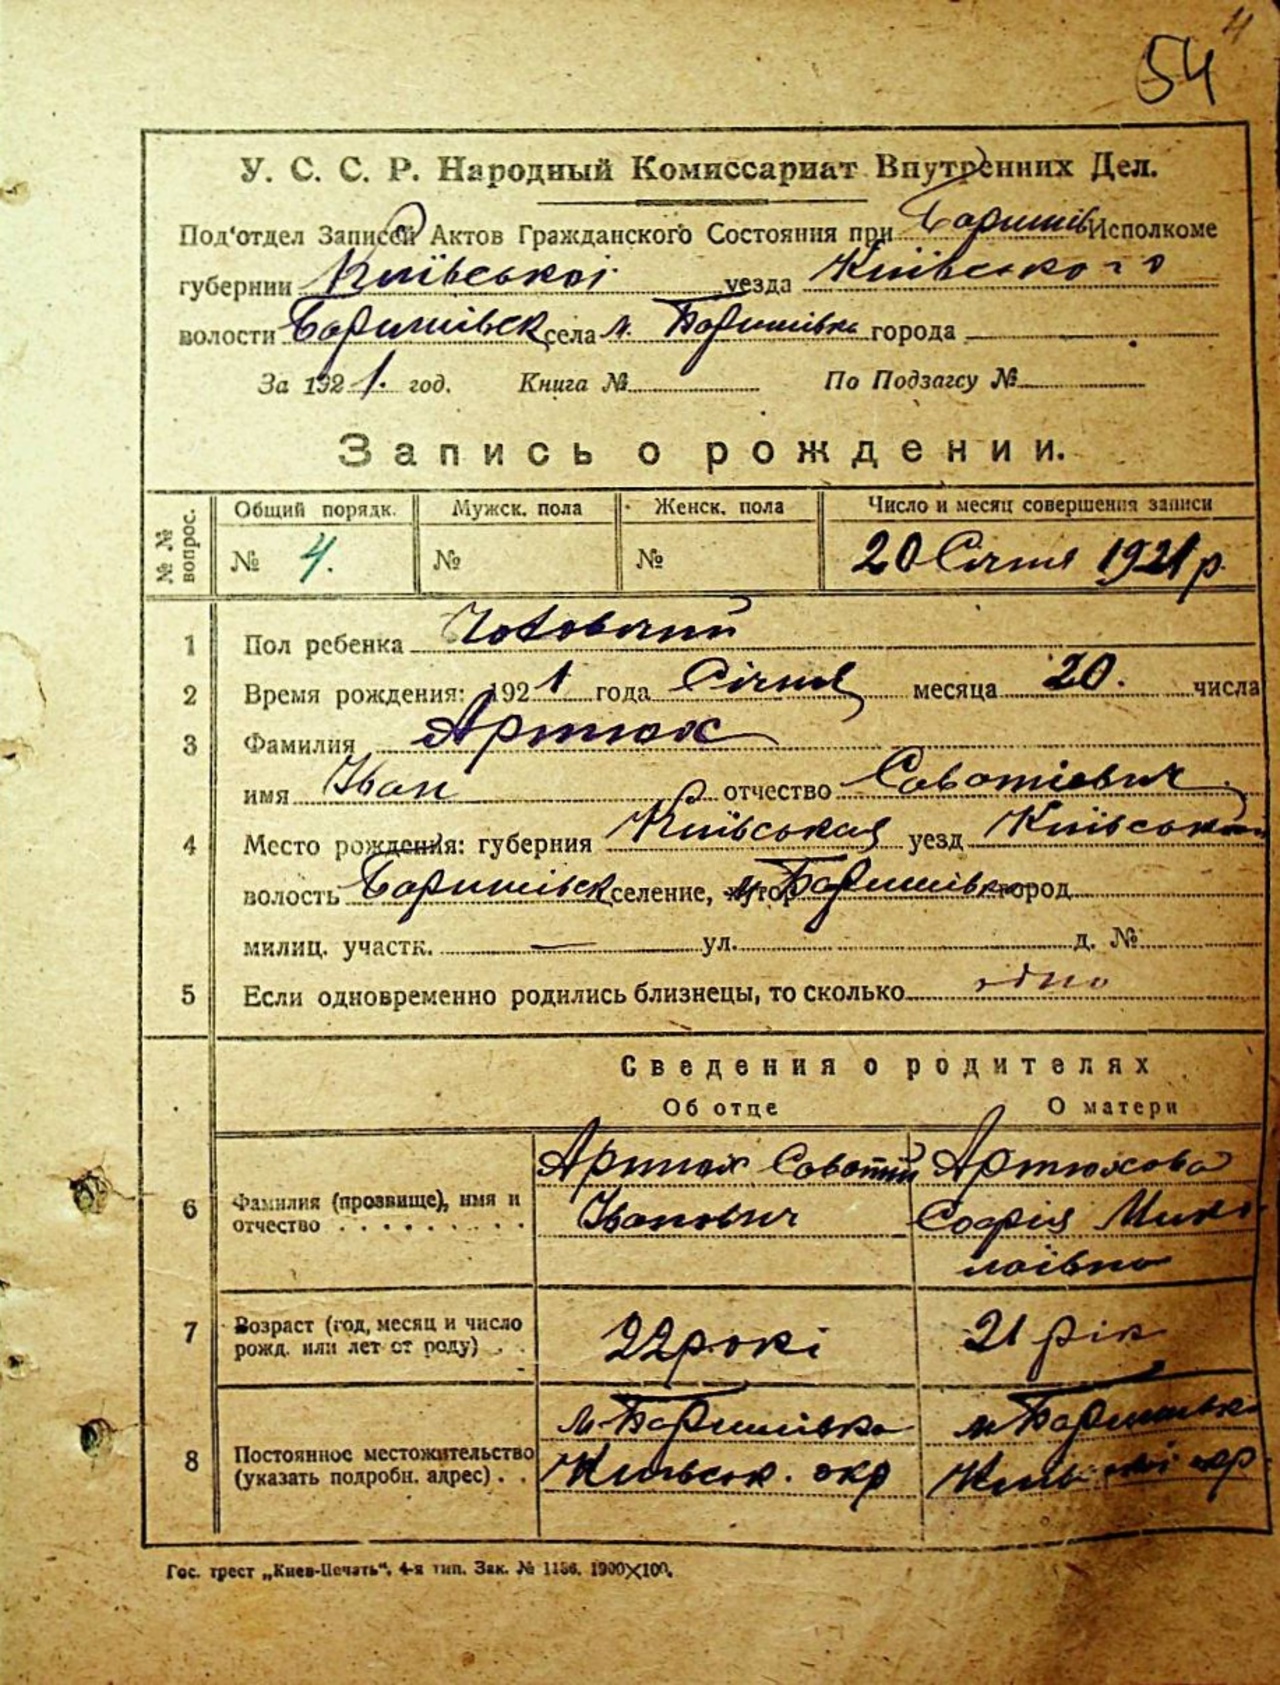 4
54
У. С. С. Р. Народный Комиссариат Внутренних Дел.
Под'отдел Записей Актов Гражданского Состояния при Баришів Исполкоме
губернии Київської уезда Київського
волости Баришівск села м. Баришівка города
За 1921. год. Книга № По Подзагсу №
Запись о рождении.
№ № вопрос. Общий порядк. Мужск. пола Женск. пола Число и месяц совершения записи
№ 4. № № 20 Січня 1921 р.
1 Пол ребенка Чоловічий
2 Время рождения: 1921 года Січня месяца 20. числа
3 Фамилия Артюх
имя Іван отчество Саватієвич
4 Место рождения: губерния Київська уезд Київський
волость Баришівск селение, хутор м. Баришівка город
милиц. участк. — ул. д. №
5 Если одновременно родились близнецы, то сколько одно
Сведения о родителях
Об отце О матери
Артюх Саватій Артюхова
6 Фамилия (прозвище), имя и отчество Іванович Софія Мико
лаївна
7 Возраст (год, месяц и число рожд. или лет от роду) 22 рокі 21 рік
м Баришівка м Баришівка
8 Постоянное местожительство (указать подробн. адрес) Київськ. окр окр
Гос. трест „Киев-Печать“. 4-я тип. Зак. № 1156. 1900×100.